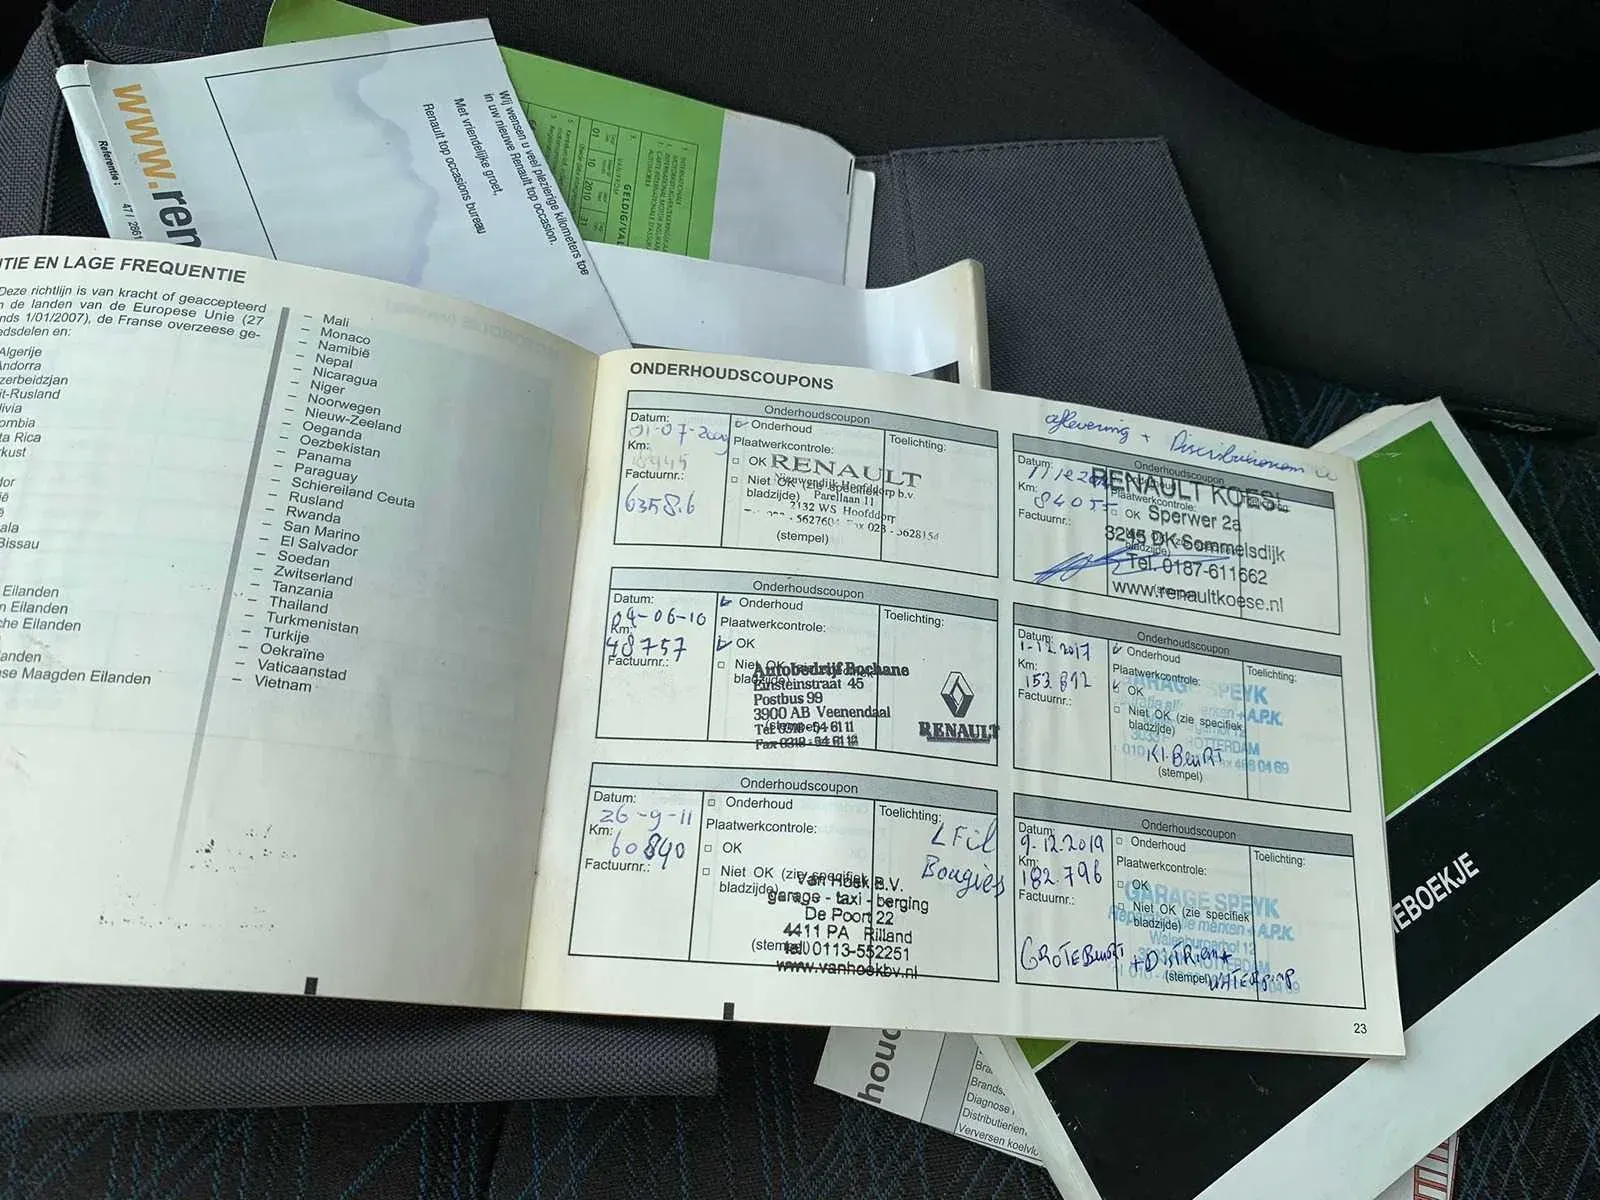 www.ren
Referentie :
47 / 2861
Wij wensen u veel plezierige kilometers toe
in uw nieuwe Renault top occasion.
Met vriendelijke groet,
Renault top occasions bureau
GELDIG/VAL
01 10 2010 31
TIE EN LAGE FREQUENTIE
Deze richtlijn is van kracht of geaccepteerd
n de landen van de Europese Unie (27
nds 1/01/2007), de Franse overzeese ge-
edsdelen en:
Algerije
Andorra
zerbeidzjan
it-Rusland
livia
ombia
ta Rica
rkust
dor
ië
ala
Bissau
Eilanden
n Eilanden
che Eilanden
landen
se Maagden Eilanden
– Mali
– Monaco
– Namibië
– Nepal
– Nicaragua
– Niger
– Noorwegen
– Nieuw-Zeeland
– Oeganda
– Oezbekistan
– Panama
– Paraguay
– Schiereiland Ceuta
– Rusland
– Rwanda
– San Marino
– El Salvador
– Soedan
– Zwitserland
– Tanzania
– Thailand
– Turkmenistan
– Turkije
– Oekraïne
– Vaticaanstad
– Vietnam
ONDERHOUDSCOUPONS
Onderhoudscoupon
Datum:
01-07-2009
Km:
Factuurnr.:
6358.6
Onderhoud
Plaatwerkcontrole:
OK
Niet OK (zie specifiek
bladzijde)
(stempel)
Toelichting:
RENAULT
Nieuwendijk Hoofddorp b.v.
Parellaan 11
2132 WS Hoofddorp
5627604 Fax 023 - 5628154
Onderhoudscoupon
Datum:
04-06-10
Km:
48757
Factuurnr.:
Onderhoud
Plaatwerkcontrole:
OK
Niet OK (zie
bladzijde)
(stempel)
Toelichting:
Autobedrijf Bochane
Einsteinstraat 45
Postbus 99
3900 AB Veenendaal
Tel. 0318-54 61 11
Fax 0318-54 61 12
RENAULT
Onderhoudscoupon
Datum:
26-9-11
Km:
60890
Factuurnr.:
Onderhoud
Plaatwerkcontrole:
OK
Niet OK (zie specifiek
bladzijde)
(stempel)
Toelichting:
LFil
Bougies
Van Hoek B.V.
garage - taxi - berging
De Poort 22
4411 PA Rilland
tel. 0113-552251
www.vanhoekbv.nl
aflevering +
Onderhoudscoupon
Datum:
Km:
Factuurnr.:
Plaatwerkcontrole:
OK
bladzijde)
RENAULT KOESE
Sperwer 2a
3245 DK Sommelsdijk
Tel. 0187-611662
www.renaultkoese.nl
Onderhoudscoupon
Datum:
1-12-2017
Km:
153.812
Factuurnr.:
Onderhoud
Plaatwerkcontrole:
OK
Niet OK (zie specifiek
bladzijde)
(stempel)
Toelichting:
GARAGE SPEYK
A.P.K.
ROTTERDAM
Kl. BEURT
Onderhoudscoupon
Datum:
9-12-2019
Km:
182.796
Factuurnr.:
Onderhoud
Plaatwerkcontrole:
OK
Niet OK (zie specifiek
bladzijde)
(stempel)
Toelichting:
GARAGE SPEYK
Reparatie alle merken + A.P.K.
Walenburgerhof 12
ROTTERDAM
GROTE BEURT + DISTRIEM +
WATERPOMP
23
IEBOEKJE
houd
Bra
Brands.
Diagnose
Distributierien,
Verversen koelvlo